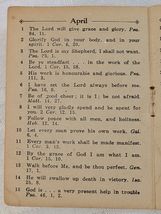 April
1 The Lord will give grace and glory. Psa.
84, 11.
2 Glorify God in your body, and in your
spirit. 1 Cor. 6, 20.
3 The Lord is my Shepherd, I shall not want.
Psa. 23, 1.
4 Be ye steadfast . . . in the work of the
Lord. 1 Cor. 15, 58.
5 His work is honourable and glorious. Psa.
111, 3.
6 I have set the Lord always before me.
Psa. 16, 8.
7 Be of good cheer; it is I; be not afraid.
Matt. 14, 27.
8 I will very gladly spend and be spent for
you. 2 Cor. 12, 15.
9 Follow peace with all men, and holiness.
Heb. 12, 14.
10 Let every man prove his own work. Gal.
6, 4.
11 Every man's work shall be made manifest.
1 Cor. 3, 13.
12 By the grace of God I am what I am.
1 Cor. 15, 10.
13 Walk before Me, and be thou perfect. Gen.
17, 1.
14 He will swallow up death in victory. Isa.
25, 8.
15 God is . . . a very present help in trouble
Psa. 46, 1.